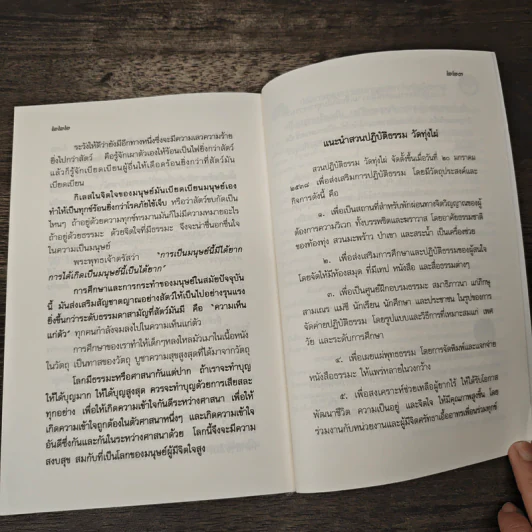 ระวังให้ดีว่ายังมีอีกทางหนึ่งซึ่งจะมีความเลวความร้าย
ยิ่งไปกว่าสัตว์ คือรู้จักเผาตัวเองให้ร้อนเป็นไฟยิ่งกว่าสัตว์
แล้วก็รู้จักเบียดเบียนผู้อื่นให้เดือดร้อนยิ่งกว่าที่สัตว์มัน
เบียดเบียน
กิเลสในจิตใจของมนุษย์มันเบียดเบียนมนุษย์เอง
ทำให้เป็นทุกข์ร้อนยิ่งกว่าโรคภัยไข้เจ็บ หรือว่าสัตว์ขบกัดเป็น
ไหนๆ ถ้าอยู่ด้วยความทุกข์ทรมานมันก็ไม่มีความหมายอะไร
ถ้าอยู่ด้วยธรรมะ ด้วยจิตใจที่มีธรรมะ จึงจะน่าชื่นอกชื่นใจ
ในความเป็นมนุษย์
พระพุทธเจ้าตรัสว่า "การเป็นมนุษย์นี้มีได้ยาก
การได้เกิดเป็นมนุษย์นี้เป็นได้ยาก"
การศึกษาและการกระทำของมนุษย์ในสมัยปัจจุบัน
นี้ มันส่งเสริมสัญชาตญาณอย่างสัตว์ให้เป็นไปอย่างรุนแรง
ยิ่งขึ้นกว่าระดับธรรมดาสามัญที่สัตว์มันมี คือ "ความเห็น
แก่ตัว" ทุกคนกำลังจมลงไปในความเห็นแก่ตัว
การศึกษาของเราทำให้เด็กๆหลงใหลมัวเมาในเนื้อหนัง
ในวัตถุ เป็นทาสของวัตถุ บูชาความสุขสูงสุดที่ได้มาจากวัตถุ
โลกมีธรรมะหรือศาสนากันแต่ปาก ถ้าเราจะทำบุญ
ให้ได้บุญมาก ให้ได้บุญสูงสุด ควรจะทำบุญด้วยการเสียสละ
ทุกอย่าง เพื่อให้เกิดความเข้าใจกันดีระหว่างศาสนา เพื่อให้
เกิดความเข้าใจถูกต้องในตัวศาสนาหนึ่งๆ และเกิดความเข้าใจ
อันดีซึ่งกันและกันในระหว่างศาสนาด้วย โลกนี้จึงจะมีความ
สงบสุข สมกับที่เป็นโลกของมนุษย์ผู้มีจิตใจสูง
แนะนำสวนปฏิบัติธรรม วัดทุ่งไผ่
สวนปฏิบัติธรรม วัดทุ่งไผ่ จัดตั้งขึ้นเมื่อวันที่ ๒๐ มกราคม
๒๕๓๘ เพื่อส่งเสริมการปฏิบัติธรรม โดยมีวัตถุประสงค์และ
กิจการดังนี้ คือ
๑. เพื่อเป็นสถานที่สำหรับพักผ่อนทางจิตวิญญาณของผู้
ต้องการความวิเวก ทั้งบรรพชิตและฆราวาส โดยอาศัยธรรมชาติ
ของท้องทุ่ง สวนมะพร้าว ป่าเขา และสระน้ำ เป็นเครื่องช่วย
๒. เพื่อส่งเสริมการศึกษาและปฏิบัติธรรมของผู้สนใจ
โดยจัดให้มีห้องสมุด ที่มีเทป หนังสือ และสื่อธรรมต่างๆ
๓. เพื่อเป็นศูนย์ฝึกอบรมธรรมะ สมาธิภาวนา แก่ภิกษุ
สามเณร แม่ชี นักเรียน นักศึกษา และประชาชน ในรูปของการ
จัดค่ายปฏิบัติธรรม โดยรูปแบบและวิธีการที่เหมาะสมแก่ เพศ
วัย และระดับการศึกษา
๔. เพื่อเผยแผ่พุทธธรรม โดยการจัดพิมพ์และแจกจ่าย
หนังสือธรรมะ ให้แพร่หลายในวงกว้าง
๕. เพื่อสงเคราะห์ช่วยเหลือผู้ยากไร้ ให้ได้รับโอกาส
พัฒนาชีวิต ความเป็นอยู่ และจิตใจ ให้มีคุณภาพสูงขึ้น โดย
ร่วมงานกับหน่วยงานและผู้มีจิตศรัทธาเอื้ออาทรเพื่อนร่วมทุกข์